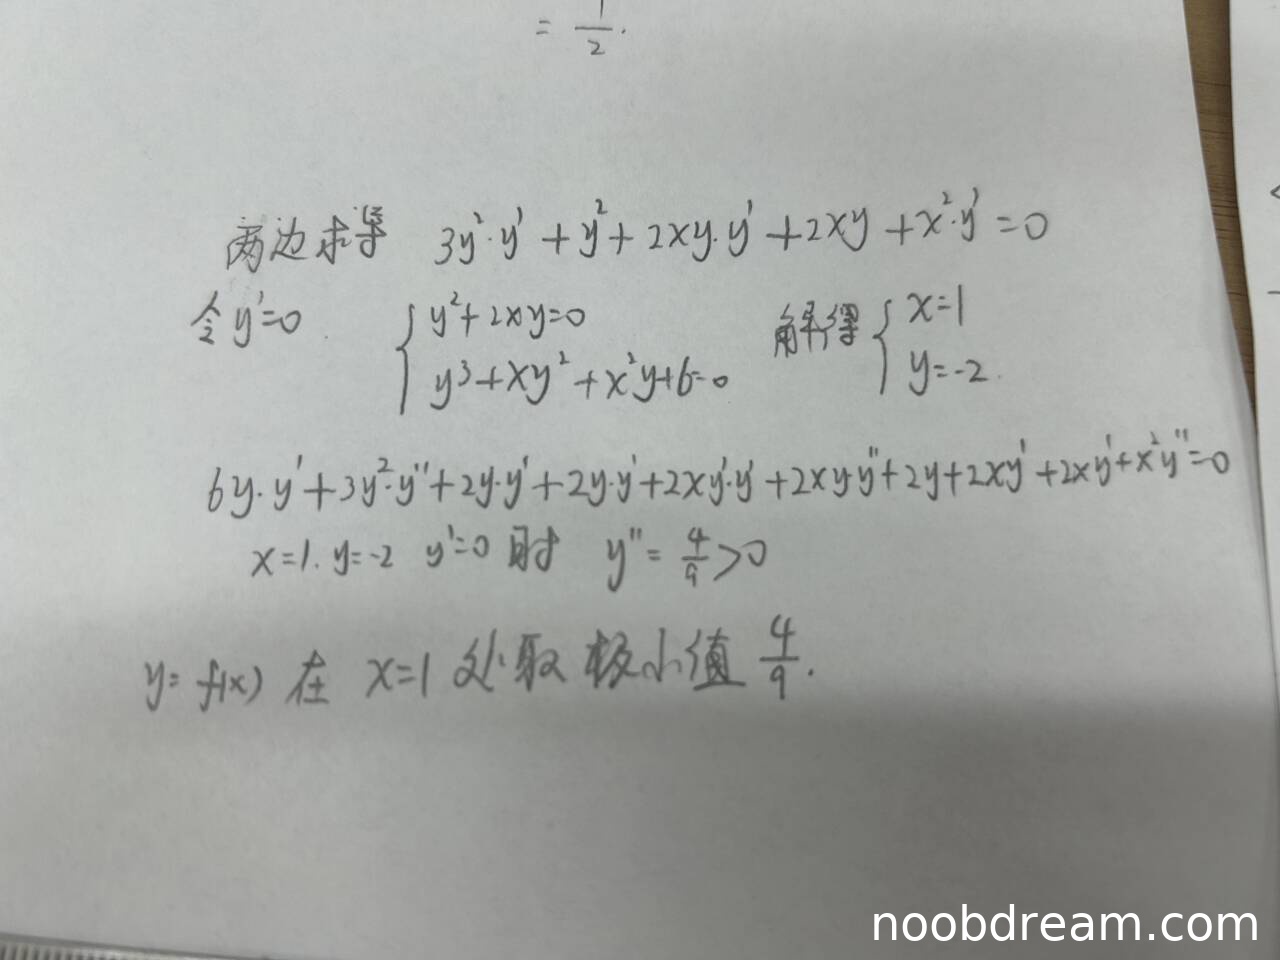 = 1/2.
两边求导 3y²·y' + y² + 2xy·y' + 2xy + x²·y' = 0
令y'=0 { y²+2xy=0 解得 { x=1
y³+xy²+x²y+6=0 y=-2.
6y·y'+3y²·y''+2y·y'+2y·y'+2xy'·y'+2xy·y''+2y+2xy'+2xy'+x²y''=0
x=1. y=-2 y'=0 时 y''=4/9>0
y=f(x) 在 x=1 处取极小值 4/9.
noobdream.com